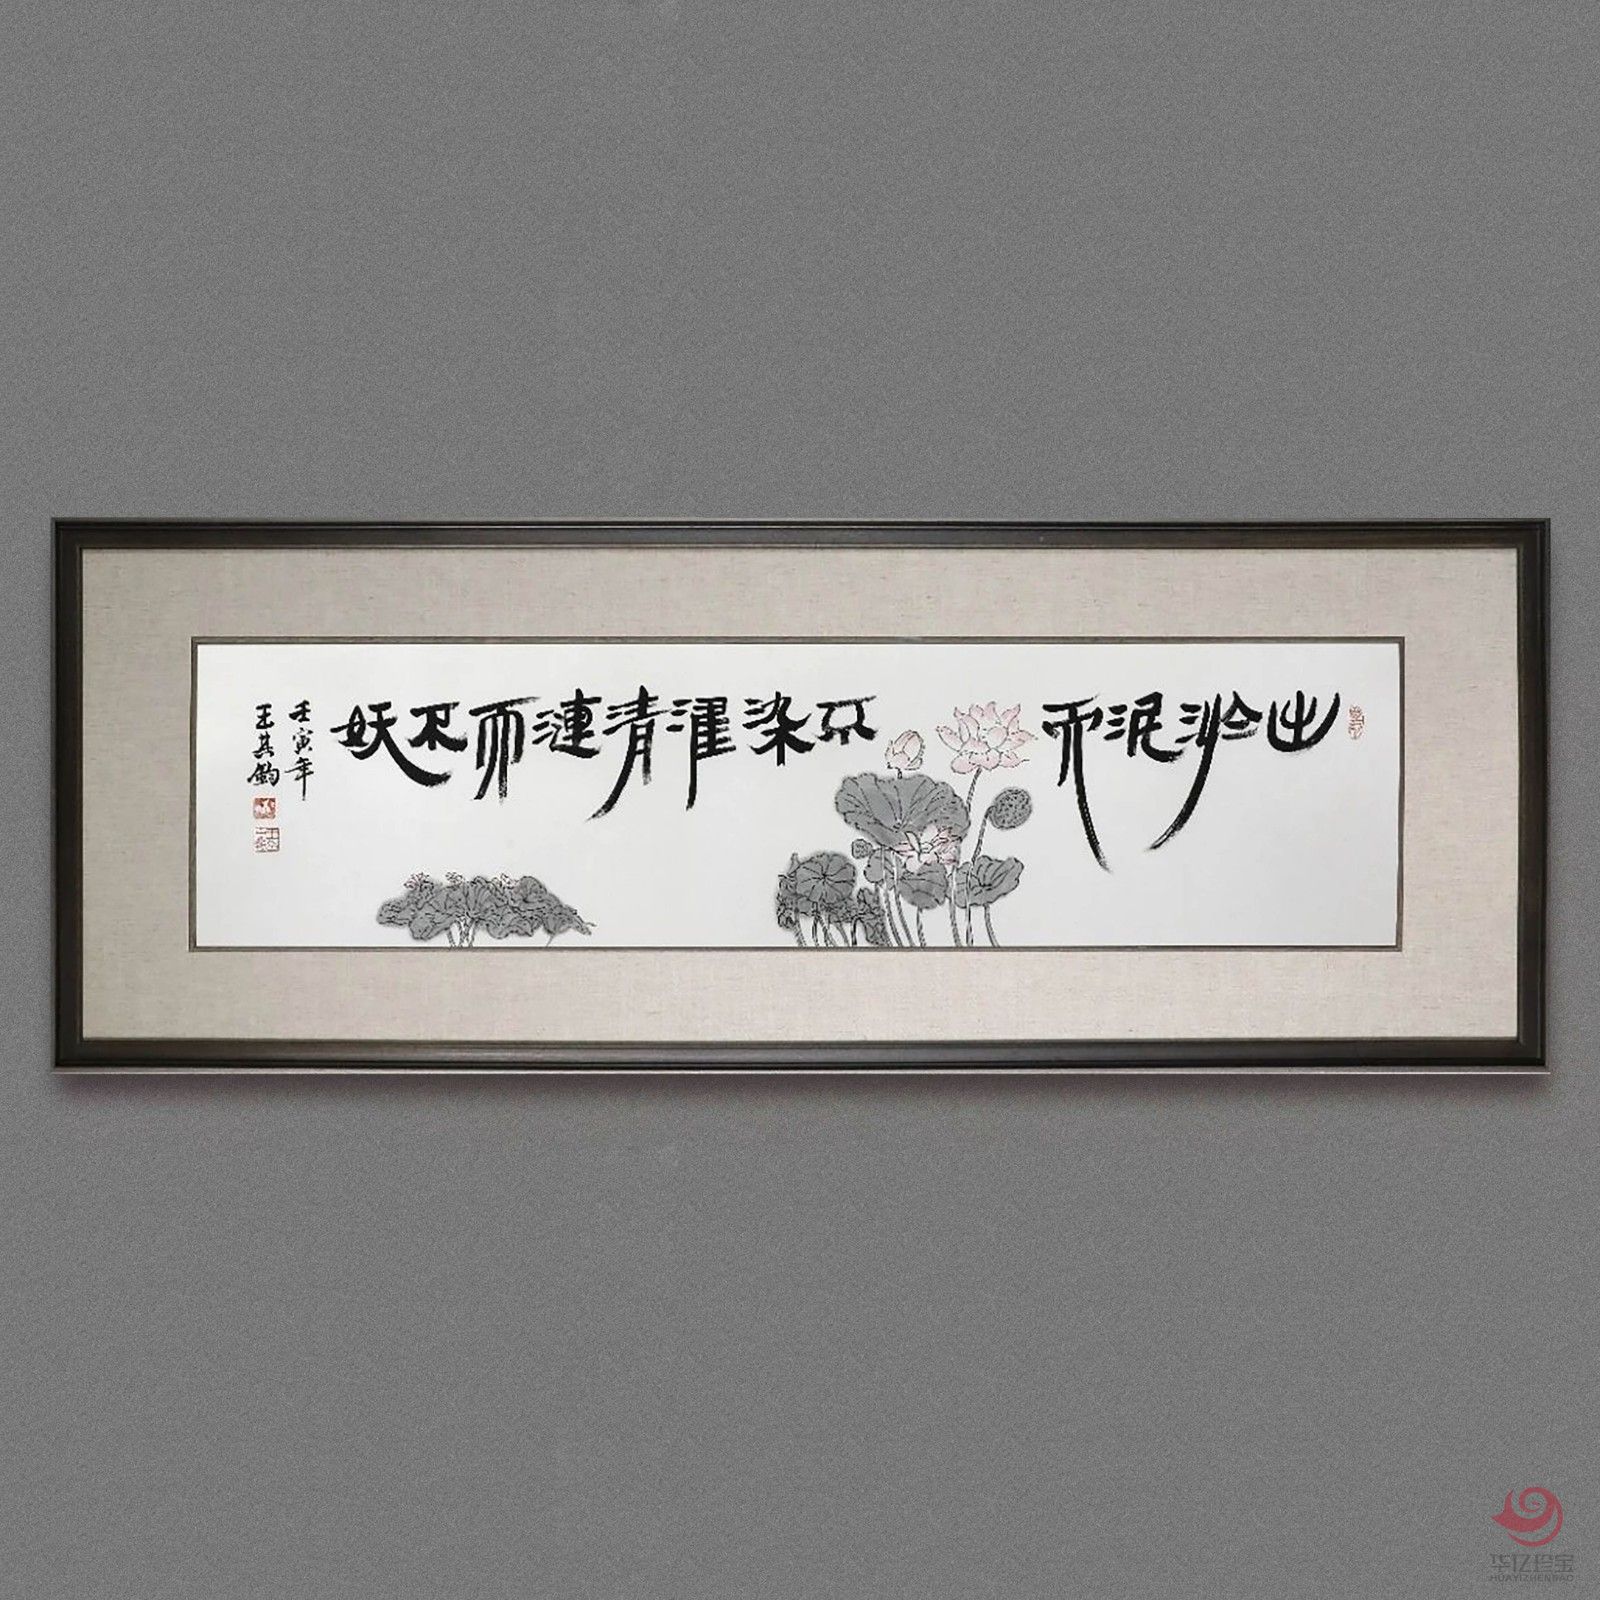 出淤泥而不染濯清漣而不妖
壬寅年
王其鈞
华亿珍宝
HUAYIZHENBAO